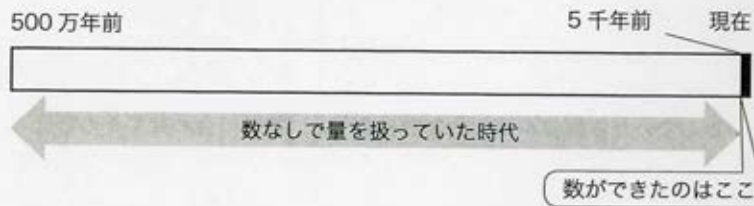 500 万年前 5 千年前 現在
数なしで量を扱っていた時代
数ができたのはここ